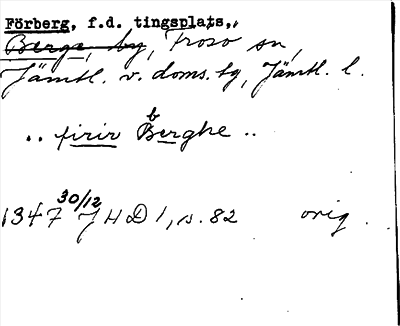 Förberg, f.d. tingsplats,
Berge, by, Frösö sn,
Jämtl. v. doms. tg, Jämtl. l.
.. firir Berghe ..
b
1347 30/12 J H D 1, s. 82 orig.